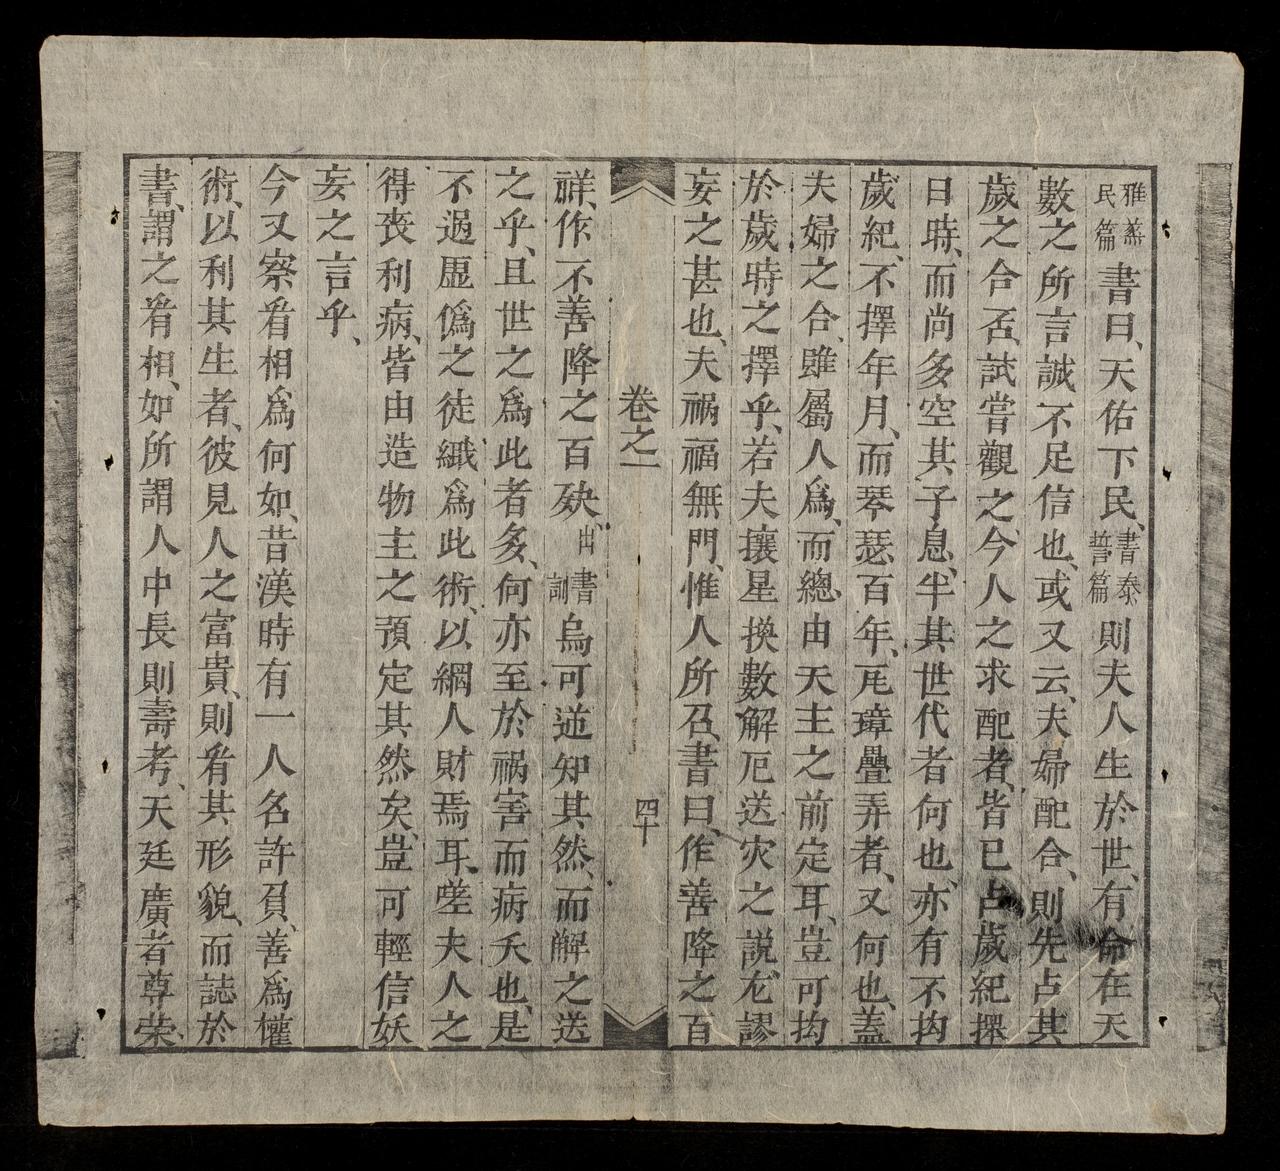 雅蒸民篇書曰、天佑下民、書泰誓篇則夫人生於世、有命在天
數之所言誠不足信也、或又云、夫婦配合、則先占其
歲之合否、試嘗觀之、今人之求配者、皆已占歲紀擇
日時、而尚多空其子息、半其世代者何也、亦有不拘
歲紀、不擇年月、而琴瑟百年、瓦璋疊弄者、又何也、蓋
夫婦之合、雖屬人爲、而總由天主之前定耳、豈可拘
於歲時之擇乎、若夫攘星換數解厄送灾之說、尤謬
妄之甚也、夫禍福無門、惟人所召、書曰、作善降之百
卷之一
四十
祥、作不善降之百殃、出書訓烏可逆知其然、而解之送
之乎、且世之爲此者多、何亦至於禍害而病夭也、是
不過虛僞之徒、纖爲此術、以網人財焉耳、嗟夫人之
得丧利病、皆由造物主之預定其然矣、豈可輕信妖
妄之言乎、
今又察看相爲何如、昔漢時有一人名許負、善爲權
術、以利其生者、彼見人之富貴、則看其形貌、而誌於
書、謂之看相、如所謂人中長則壽考、天廷廣者尊榮、